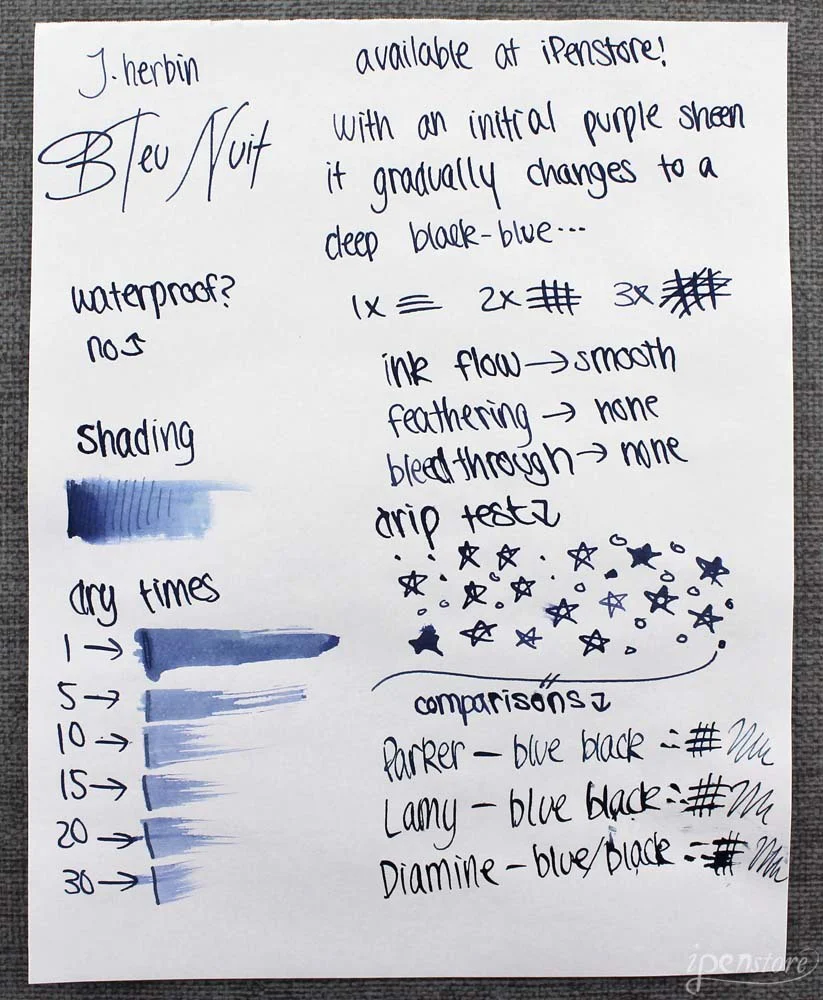 J. herbin
Bleu Nuit
available at iPenstore!
with an initial purple sheen
it gradually changes to a
deep black-blue...
waterproof?
no
1x 2x 3x
ink flow → smooth
feathering → none
bleedthrough → none
shading
drip test ↓
dry times
1 →
5 →
10 →
15 →
20 →
30 →
comparisons ↓
Parker - blue black
Lamy - blue black
Diamine - blue/black
ipenstore